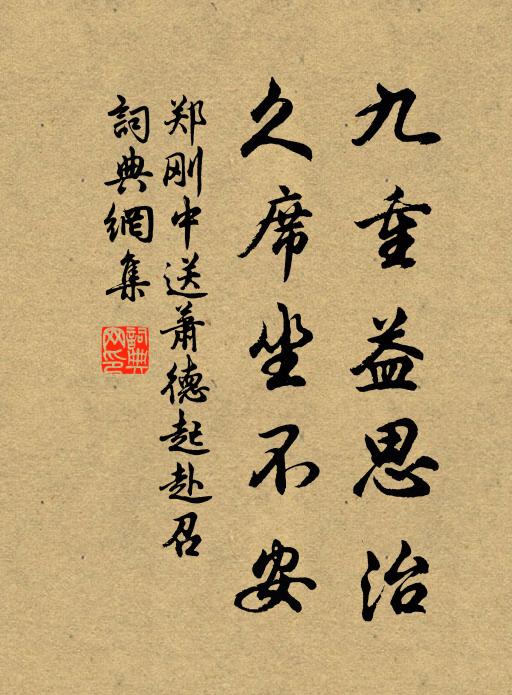 九重益思治
久席坐不安
郑刚中送萧德起赴召
詞典網集
詞典网印